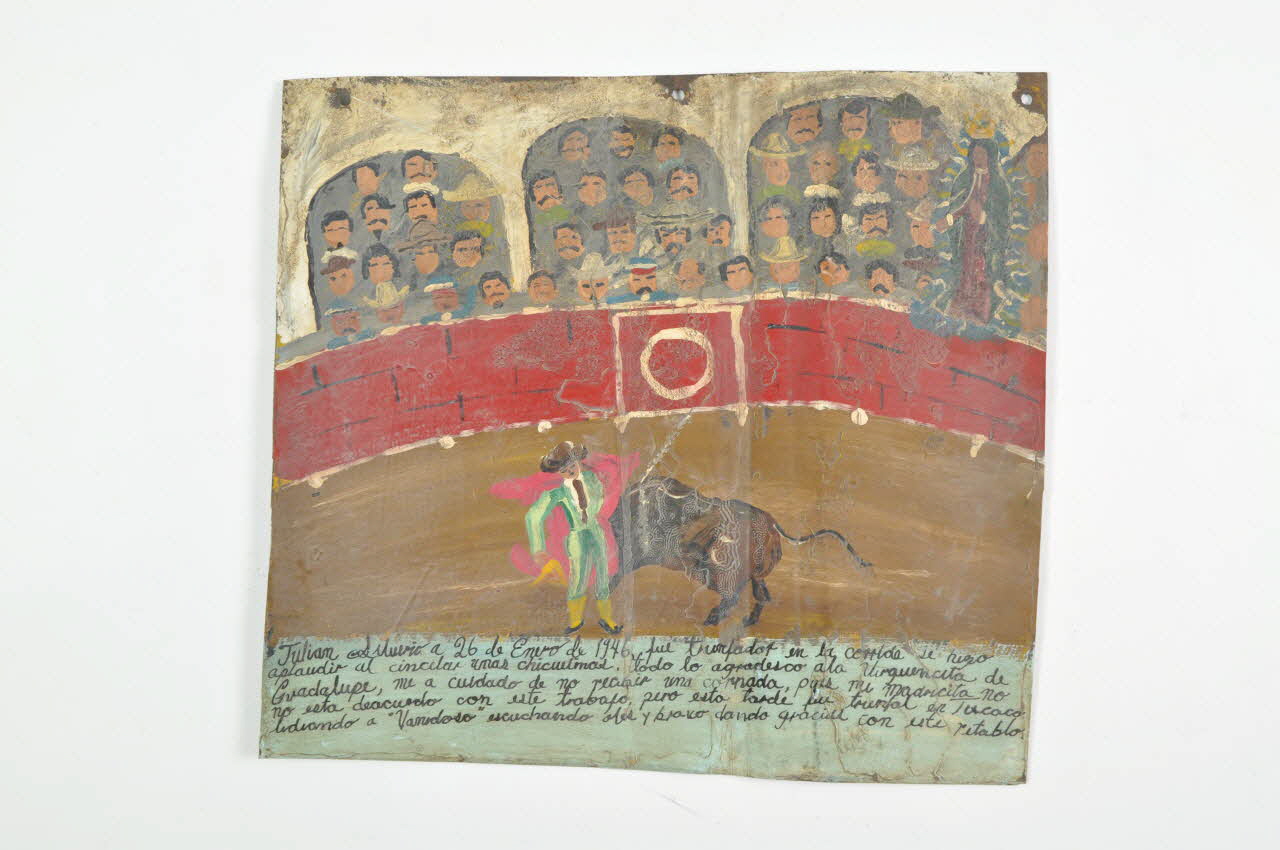 Julian a 26 de Enero de 1946, fue triunfador en la corrida se hizo
aplaudir al cincelar unas chicuelinas. todo lo agradesco a la Virguencita de
Guadalupe, me a cuidado de no recivir una cornada, pues mi madricita no
no esta deacuerdo con este trabajo, pero esta tarde fue triunfal en
lidiando a "Vanidoso" escuchando oles y bravo dando gracias con este retablo.